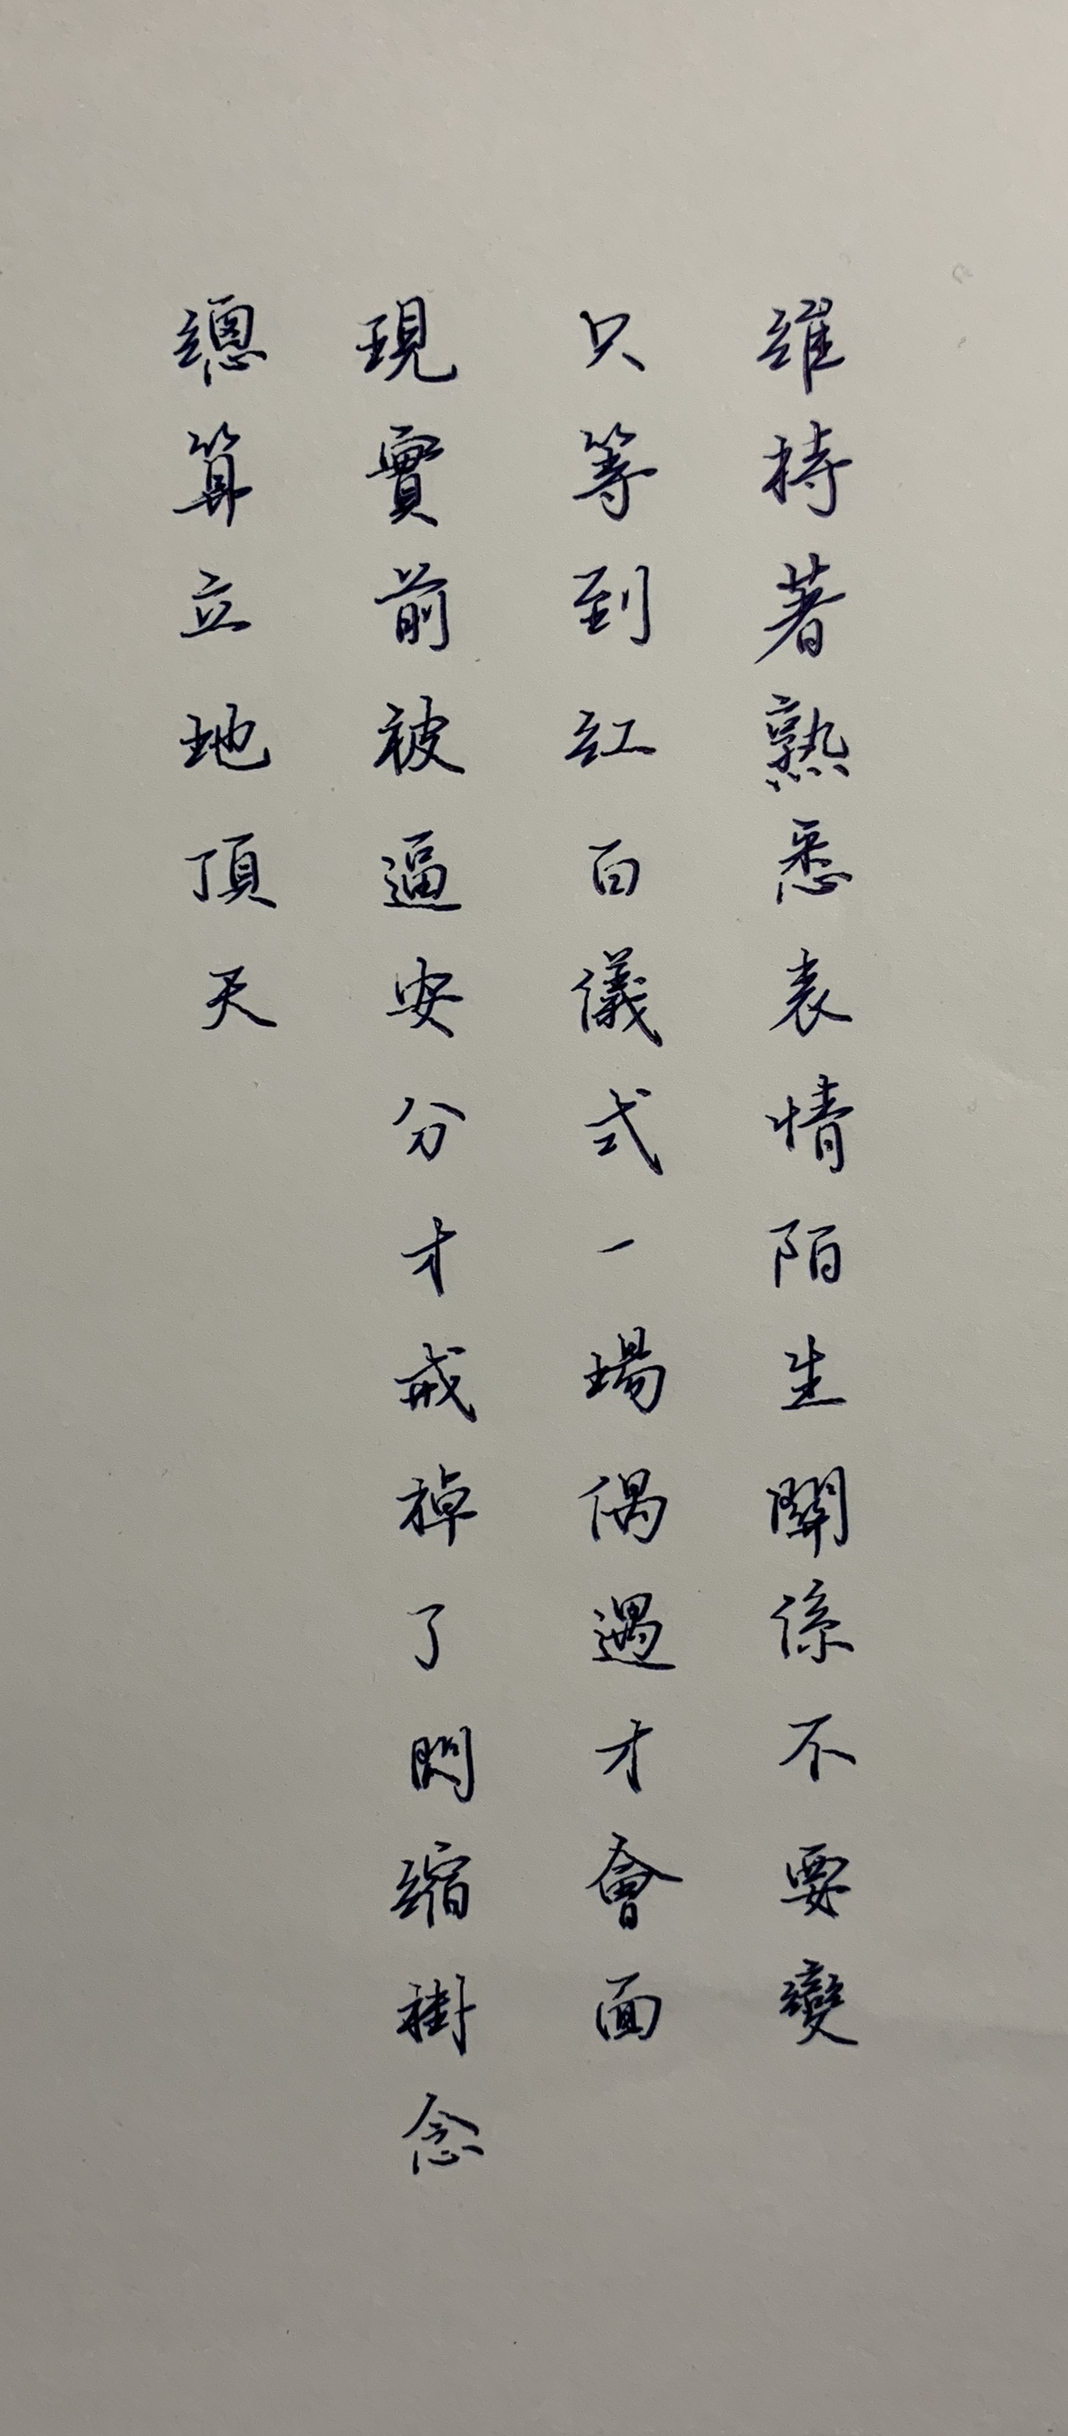 維持著熟悉表情陌生關係不要變
只等到紅白儀式一場偶遇才會面
現實前被逼安分才戒掉了閃縮掛念
總算立地頂天